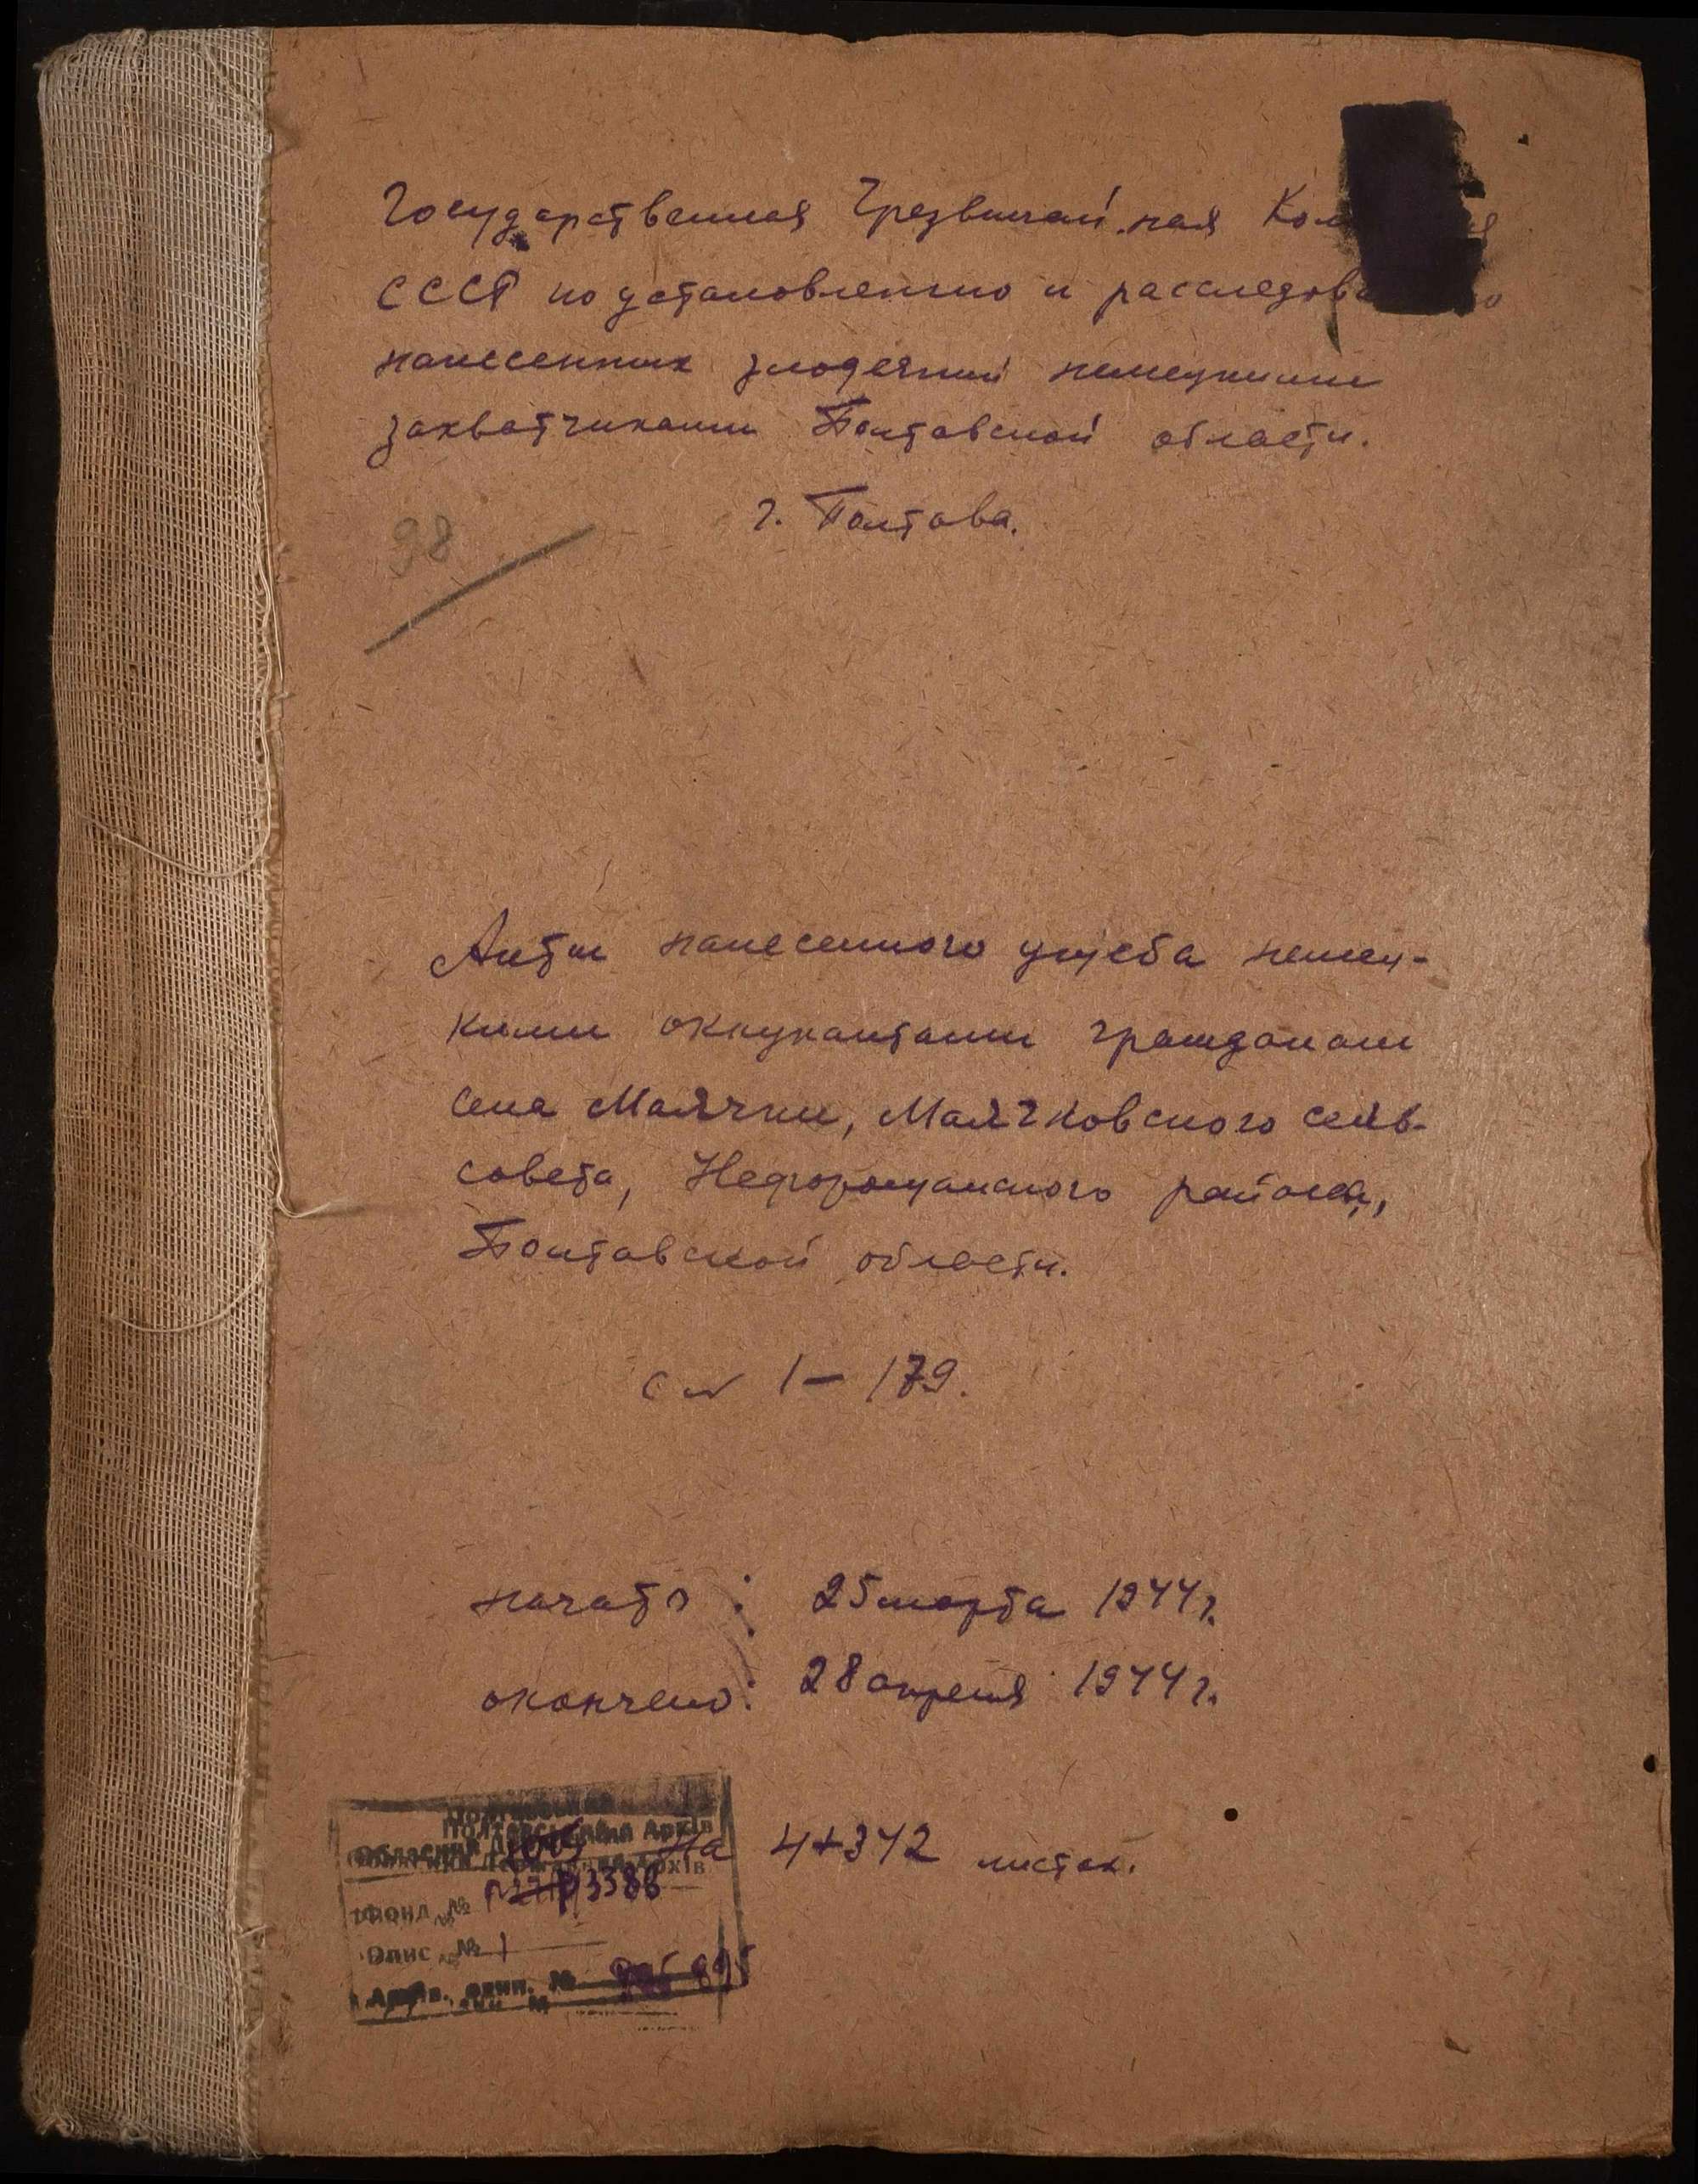 Государственная Чрезвичайная Ком
СССР по установлению и расследова
нанесенных злодеяний немецкими
захватчиками Полтавской области.
г. Полтава.
98
Акты нанесенного ущерба немец-
кими оккупантами гражданам
села Маячки, Маячковского сель-
совета, Нехворощанского района,
Полтавской области.
с № 1 – 179.
начато : 25 марта 1944 г.
окончено: 28 апреля 1944 г.
На 4+342 листах.
Обласний Державний Архів
Фонд № Р3388
Опис № 1
Архів. один. № 895